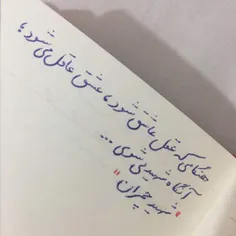 هنگامی که عقل عاشق شود ، عشق عاقل می شود ؛
آنگاه شهید می شوی ...
"شهید چمران"